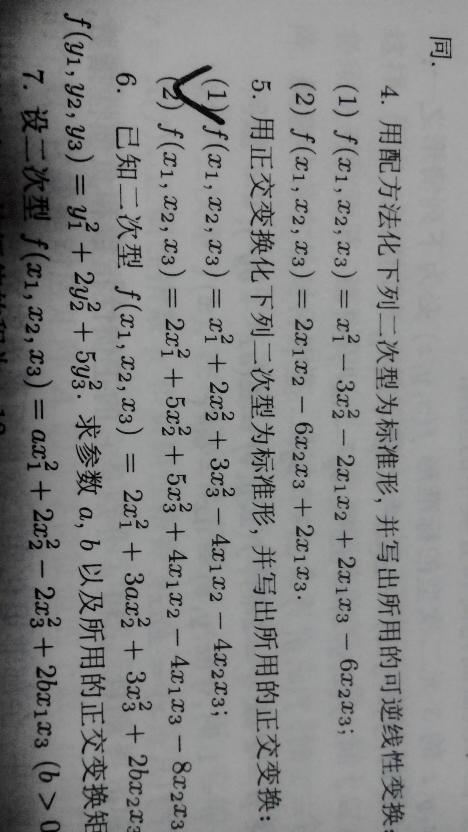 同.
4. 用配方法化下列二次型为标准形, 并写出所用的可逆线性变换:
(1) f(x₁, x₂, x₃) = x₁² − 3x₂² − 2x₁x₂ + 2x₁x₃ − 6x₂x₃;
(2) f(x₁, x₂, x₃) = 2x₁x₂ − 6x₂x₃ + 2x₁x₃.
5. 用正交变换化下列二次型为标准形, 并写出所用的正交变换:
(1) f(x₁, x₂, x₃) = x₁² + 2x₂² + 3x₃² − 4x₁x₂ − 4x₂x₃;
(2) f(x₁, x₂, x₃) = 2x₁² + 5x₂² + 5x₃² + 4x₁x₂ − 4x₁x₃ − 8x₂x₃
6. 已知二次型 f(x₁, x₂, x₃) = 2x₁² + 3ax₂² + 3x₃² + 2bx₂x₃
f(y₁, y₂, y₃) = y₁² + 2y₂² + 5y₃². 求参数 a, b 以及所用的正交变换矩
7. 设二次型 f(x₁, x₂, x₃) = ax₁² + 2x₂² − 2x₃² + 2bx₁x₃ (b > 0